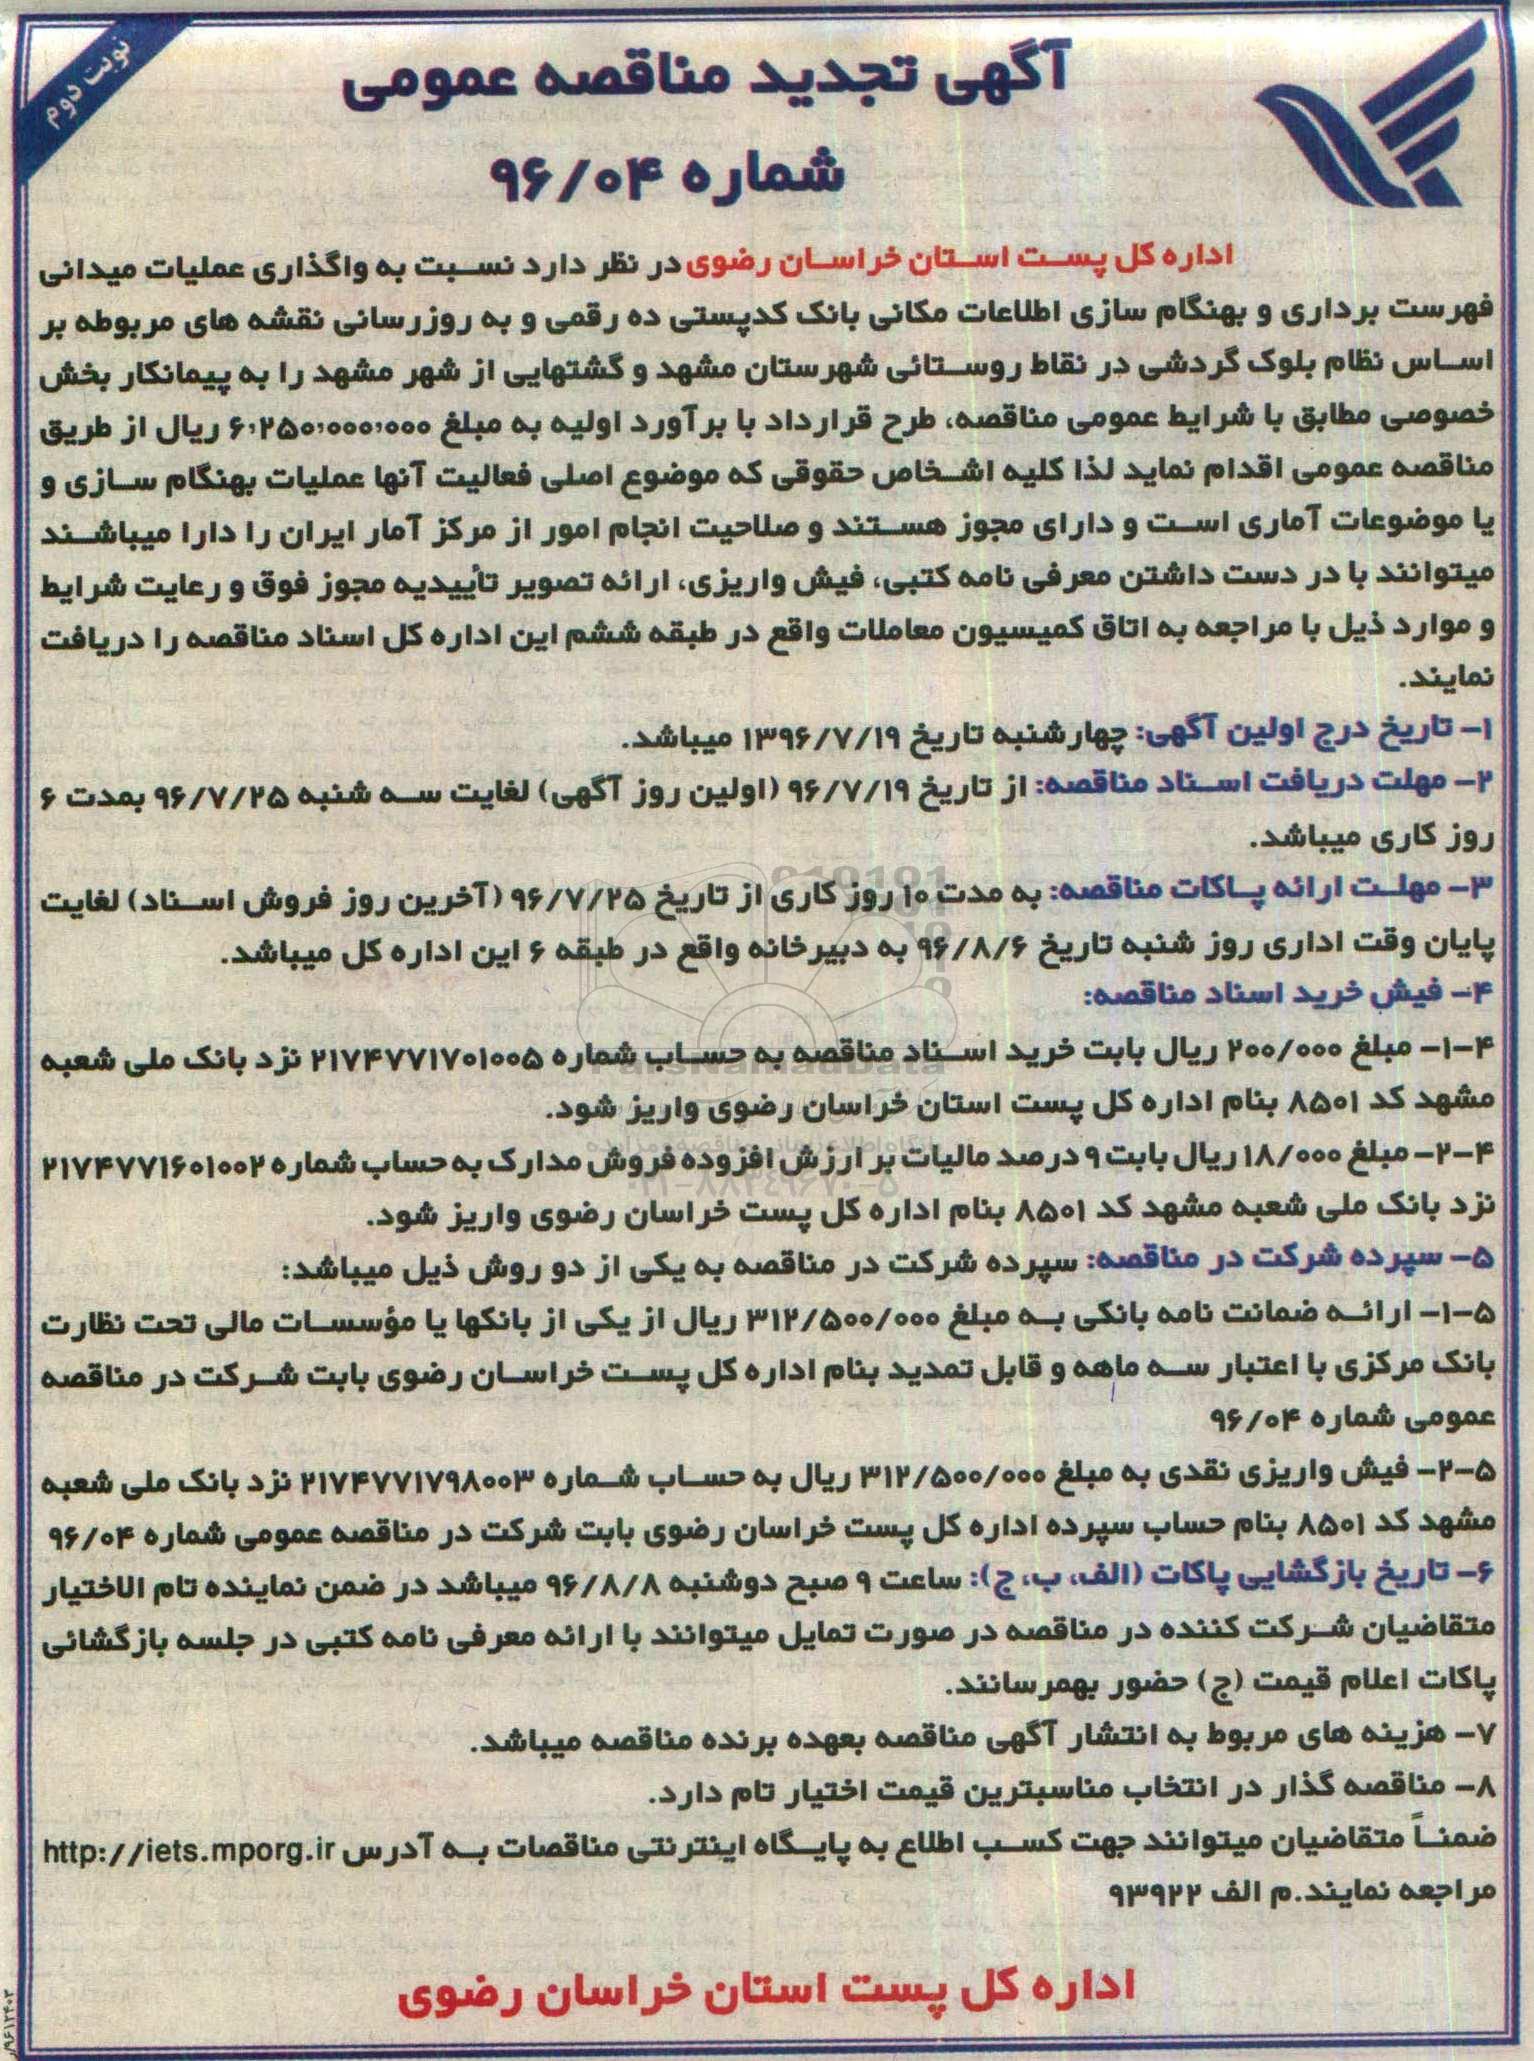 نوبت دوم
آگهی تجدید مناقصه عمومی
شماره ۹۶/۰۴
اداره کل پست استان خراسان رضوی در نظر دارد نسبت به واگذاری عملیات میدانی
فهرست برداری و بهنگام سازی اطلاعات مکانی بانک کدپستی ده رقمی و به روزرسانی نقشه های مربوطه بر
اساس نظام بلوک گردشی در نقاط روستائی شهرستان مشهد و گشتهایی از شهر مشهد را به پیمانکار بخش
خصوصی مطابق با شرایط عمومی مناقصه، طرح قرارداد با برآورد اولیه به مبلغ ۶,۲۵۰,۰۰۰,۰۰۰ ریال از طریق
مناقصه عمومی اقدام نماید لذا کلیه اشخاص حقوقی که موضوع اصلی فعالیت آنها عملیات بهنگام سازی و
یا موضوعات آماری است و دارای مجوز هستند و صلاحیت انجام امور از مرکز آمار ایران را دارا میباشند
میتوانند با در دست داشتن معرفی نامه کتبی، فیش واریزی، ارائه تصویر تأییدیه مجوز فوق و رعایت شرایط
و موارد ذیل با مراجعه به اتاق کمیسیون معاملات واقع در طبقه ششم این اداره کل اسناد مناقصه را دریافت
نمایند.
۱- تاریخ درج اولین آگهی: چهارشنبه تاریخ ۱۳۹۶/۷/۱۹ میباشد.
۲- مهلت دریافت اسناد مناقصه: از تاریخ ۹۶/۷/۱۹ (اولین روز آگهی) لغایت سه شنبه ۹۶/۷/۲۵ بمدت ۶
روز کاری میباشد.
۳- مهلت ارائه پاکات مناقصه: به مدت ۱۰ روز کاری از تاریخ ۹۶/۷/۲۵ (آخرین روز فروش اسناد) لغایت
پایان وقت اداری روز شنبه تاریخ ۹۶/۸/۶ به دبیرخانه واقع در طبقه ۶ این اداره کل میباشد.
۴- فیش خرید اسناد مناقصه:
۴-۱- مبلغ ۲۰۰/۰۰۰ ریال بابت خرید اسناد مناقصه به حساب شماره ۲۱۷۴۷۷۱۷۰۱۰۰۵ نزد بانک ملی شعبه
مشهد کد ۸۵۰۱ بنام اداره کل پست استان خراسان رضوی واریز شود.
۴-۲- مبلغ ۱۸/۰۰۰ ریال بابت ۹ درصد مالیات بر ارزش افزوده فروش مدارک به حساب شماره ۲۱۷۴۷۷۱۶۰۱۰۰۲
نزد بانک ملی شعبه مشهد کد ۸۵۰۱ بنام اداره کل پست خراسان رضوی واریز شود.
۵- سپرده شرکت در مناقصه: سپرده شرکت در مناقصه به یکی از دو روش ذیل میباشد:
۵-۱- ارائه ضمانت نامه بانکی به مبلغ ۳۱۲/۵۰۰/۰۰۰ ریال از یکی از بانکها یا مؤسسات مالی تحت نظارت
بانک مرکزی با اعتبار سه ماهه و قابل تمدید بنام اداره کل پست خراسان رضوی بابت شرکت در مناقصه
عمومی شماره ۹۶/۰۴
۵-۲- فیش واریزی نقدی به مبلغ ۳۱۲/۵۰۰/۰۰۰ ریال به حساب شماره ۲۱۷۴۷۷۱۷۹۸۰۰۳ نزد بانک ملی شعبه
مشهد کد ۸۵۰۱ بنام حساب سپرده اداره کل پست خراسان رضوی بابت شرکت در مناقصه عمومی شماره ۹۶/۰۴
۶- تاریخ بازگشایی پاکات (الف، ب، ج): ساعت ۹ صبح دوشنبه ۹۶/۸/۸ میباشد در ضمن نماینده تام الاختیار
متقاضیان شرکت کننده در مناقصه در صورت تمایل میتوانند با ارائه معرفی نامه کتبی در جلسه بازگشائی
پاکات اعلام قیمت (ج) حضور بهمرسانند.
۷- هزینه های مربوط به انتشار آگهی مناقصه بعهده برنده مناقصه میباشد.
۸- مناقصه گذار در انتخاب مناسبترین قیمت اختیار تام دارد.
ضمناً متقاضیان میتوانند جهت کسب اطلاع به پایگاه اینترنتی مناقصات به آدرس http://iets.mporg.ir
مراجعه نمایند. م الف ۹۳۹۲۲
اداره کل پست استان خراسان رضوی